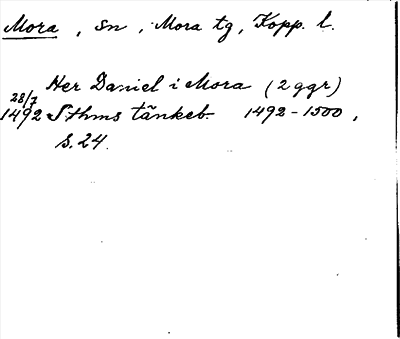 Mora, sn, Mora tg, Kopp. l.
Her Daniel i Mora (2 ggr)
28/7
1492 Sthms tänkeb. 1492-1500,
s. 24.